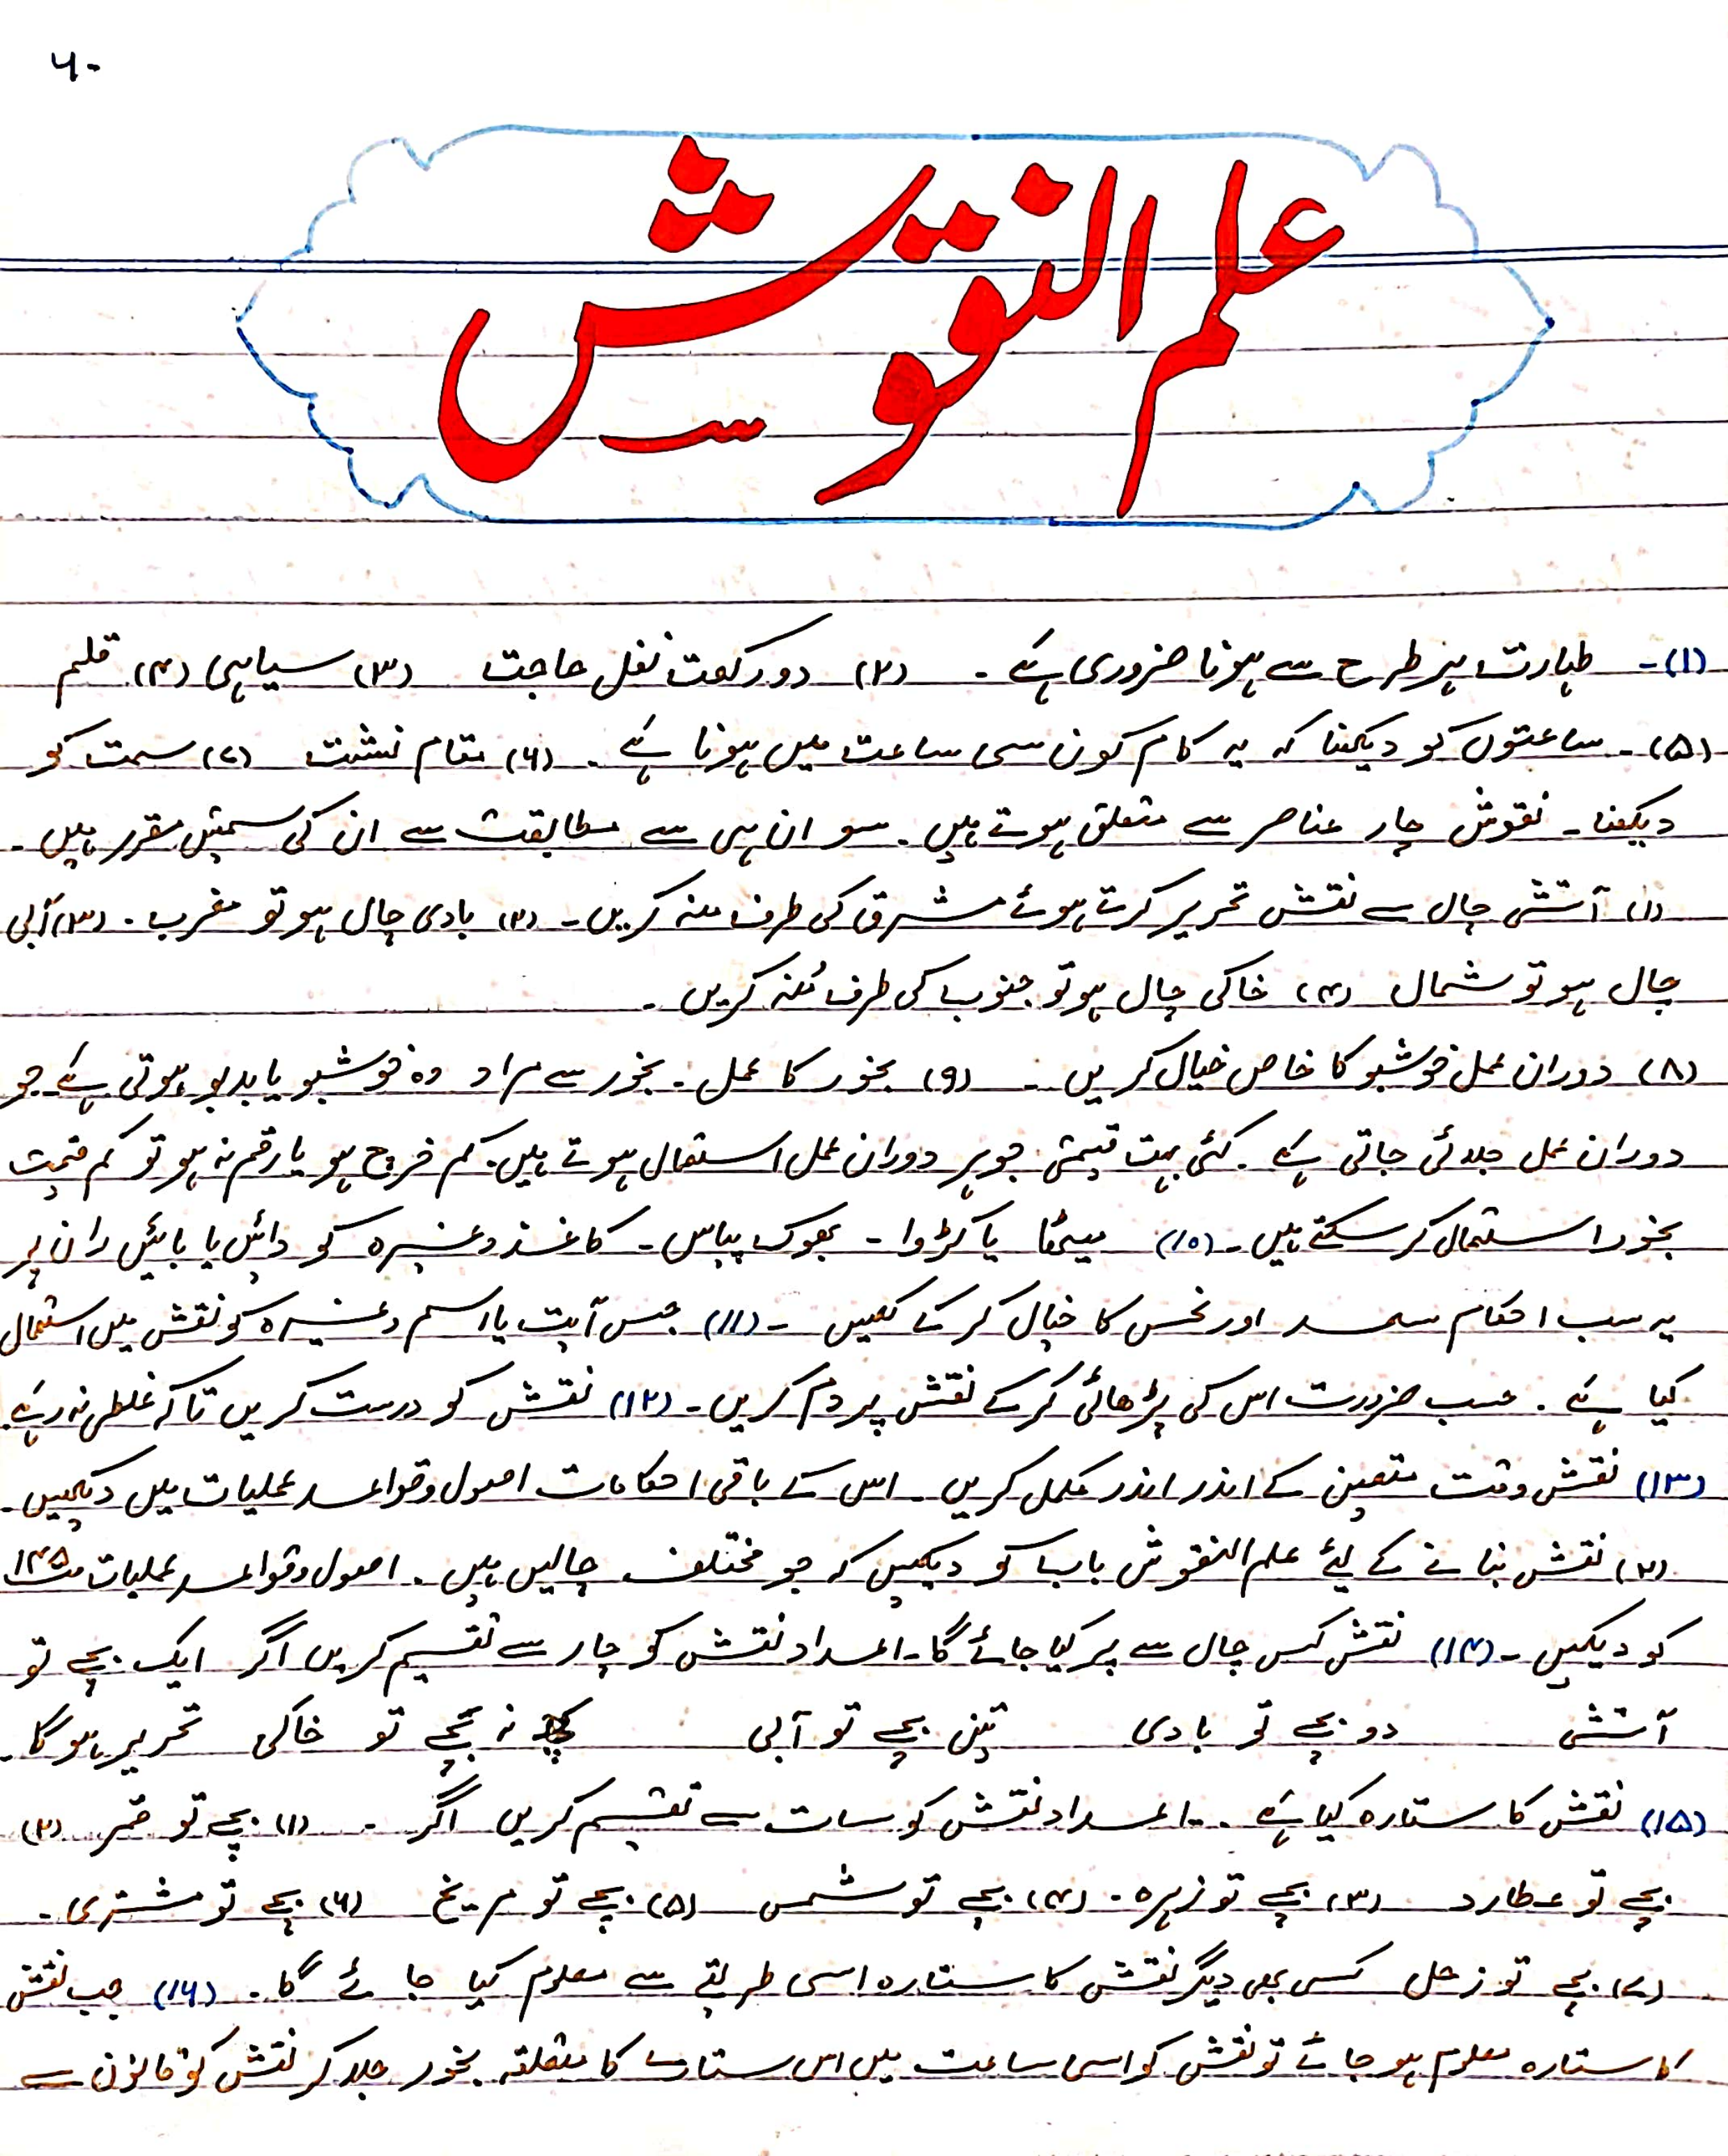 ۶۰
علم النقوش
(۱)۔ طہارت ہر طرح سے ہونا ضروری ہے ۔ (۲) دو رکعت نفل حاجت (۳) سیاہی (۴) قلم
(۵)۔ ساعتوں کو دیکھنا کہ یہ کام کون سی ساعت میں ہونا ہے ۔ (۶) مقام نشت (۷) سمت کو
دیکھنا ۔ نقوش چار عناصر سے متعلق ہوتے ہیں ۔ سو ان ہی سے مطابقت سے ان کی سمیتں مقرر ہیں ۔
(۱) آتشی چال سے نقش تحریر کرتے ہوئے مشرق کی طرف منہ کریں ۔ (۲) بادی چال ہو تو مغرب ۔ (۳) آبی
چال ہو تو شمال (۴) خاکی چال ہو تو جنوب کی طرف مُنہ کریں ۔
(۸) دوران عمل خوشبو کا خاص خیال کریں ۔ (۹) بخور کا عمل ۔ بخور سے مراد وہ خوشبو یا بدبو ہوتی ہے جو
دوران عمل جلائی جاتی ہے ۔ کئی بہت قیمتی جوہر دوران عمل استعمال ہوتے ہیں ۔ کم خرچ ہو یا رقم نہ ہو تو کم قیمت
بخور استعمال کر سکتے ہیں ۔ (۱۰) میٹھا یا کڑوا ۔ بھوک پیاس ۔ کاغذ وغیرہ کو دائیں یا بائیں ران پر
یہ سب احکام سعد اور نحس کا خیال کر کے لکھیں ۔ (۱۱) جس آیت یا اسم وغیرہ کو نقش میں استعمال
کیا ہے ۔ حسب ضرورت اس کی پڑھائی کر کے نقش پر دم کریں ۔ (۱۲) نقش کو درست کریں تاکہ غلطی نہ رہے
(۱۳) نقش وقت متعین کے اندر اندر مکمل کریں ۔ اس کے باقی احکامات اصول و قواعد عملیات میں دیکھیں ۔
(۲) نقش بنانے کے لیئے علم النقوش باب کو دیکھیں کہ جو مختلف چالیں ہیں ۔ اصول و قواعد عملیات ص۱۴۵
کو دیکھیں ۔ (۱۴) نقش کس چال سے پر کیا جائے گا ۔ اعداد نقش کو چار سے تقسیم کریں اگر ایک بچے تو
آتشی دو بچے تو بادی تین بچے تو آبی کچھ نہ بچے تو خاکی تحریر ہو گا ۔
(۱۵) نقش کا ستارہ کیا ہے ۔ اعداد نقش کو سات سے تقسیم کریں اگر ۔ (۱) بچے تو قمر (۲)
بچے تو عطارد (۳) بچے تو زہرہ ۔ (۴) بچے تو شمس (۵) بچے تو مریخ (۶) بچے تو مشتری ۔
(۷) بچے تو زحل کسی بھی دیگر نقش کا ستارہ اسی طریقے سے معلوم کیا جائے گا ۔ (۱۶) جب نقش
کا ستارہ معلوم ہو جائے تو نقش کو اسی ساعت میں اس ستارے کا متعلقہ بخور جلا کر نقش کو قانون سے